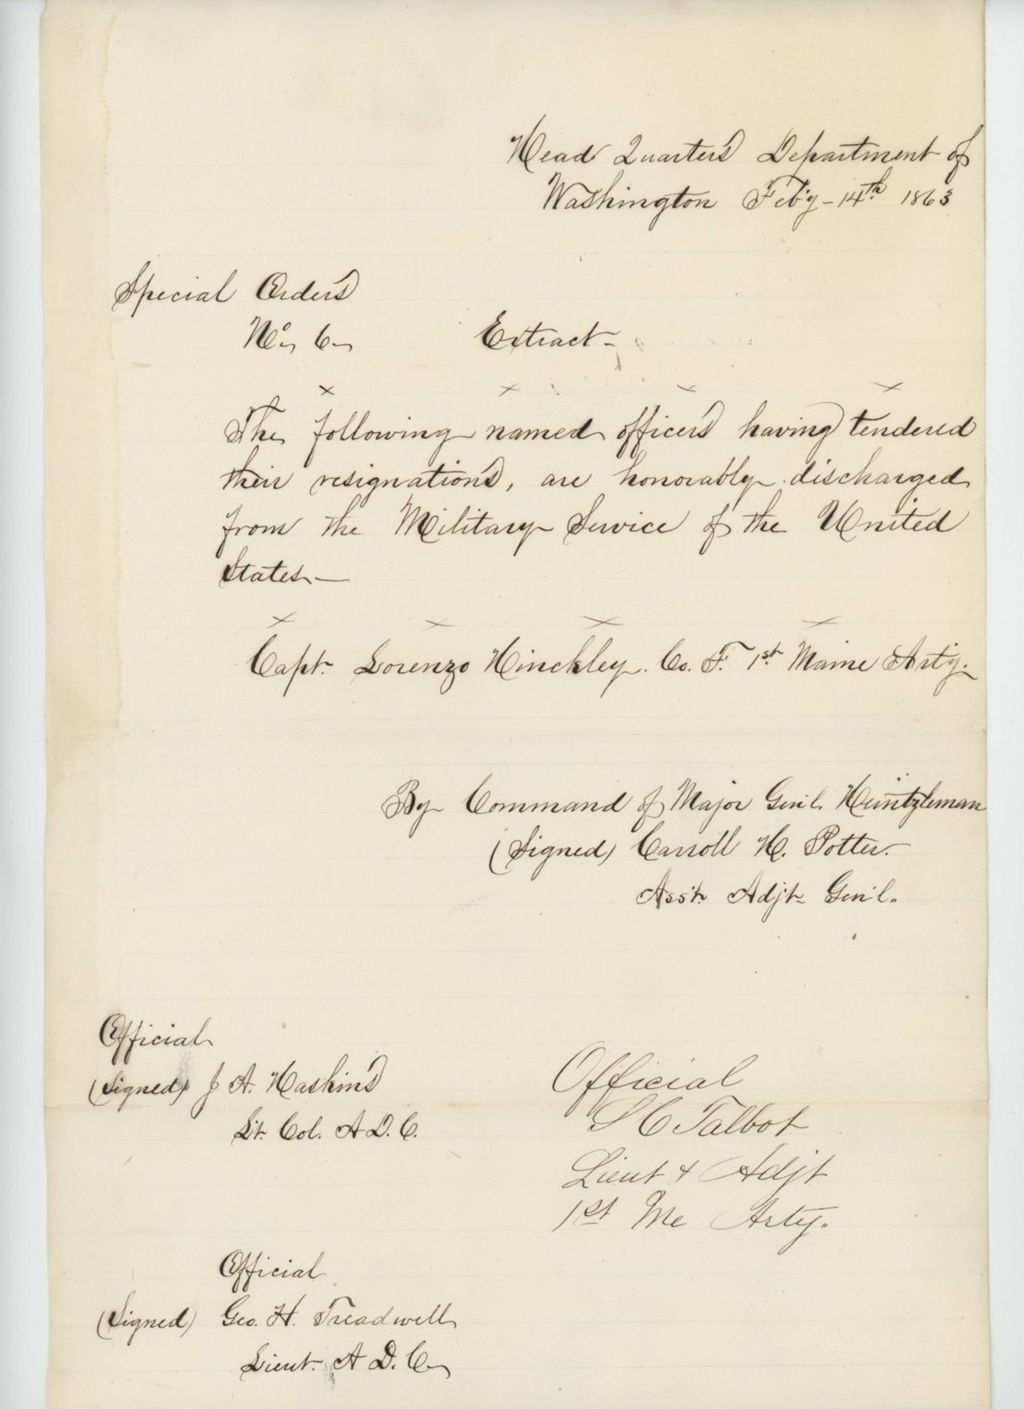 Head Quarters Department of
Washington Feb'y - 14th 1863
Special Orders
No. 6 Extract -
x x x x
The following named officers having tendered
their resignations, are honorably discharged
from the Military Service of the United
States. —
x x x x
Capt. Lorenzo Hinckley. Co. F. 1st Maine Arty.
By Command of Major Gen'l. Heintzleman
(Signed) Carroll H. Potter.
Asst. Adjt. Gen'l.
Official
(Signed) J A. Haskins
Lt. Col. A D. C.
Official
S C Talbot
Lieut & Adjt
1st Me Arty.
Official
(Signed) Geo. H. Treadwell
Lieut. A D. C.